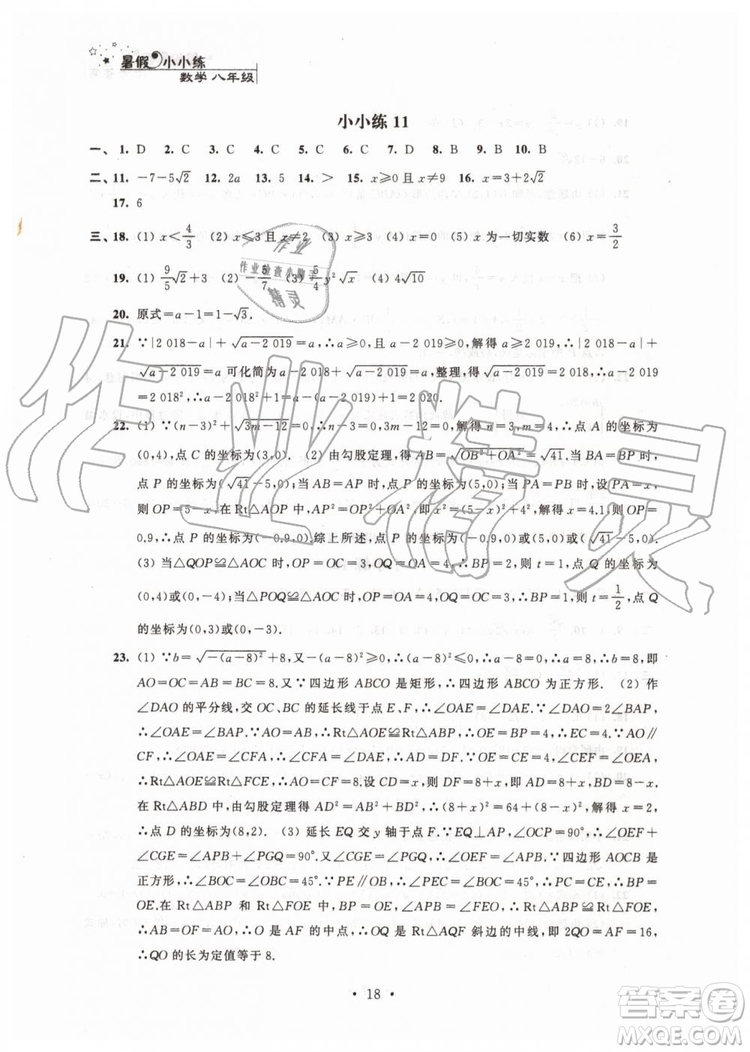 暑假小小练
数学 八年级
小小练 11
一、1. D 2. C 3. C 4. C 5. C 6. C 7. C 8. B 9. B 10. B
二、11. -7-5√2 12. 2a 13. 5 14. > 15. x≥0且x≠9 16. x=3+2√2
17. 6
三、18. (1) x<4/3 (2) x≤3且x≠2 (3) x≤0 (4) x=0 (5) x为一切实数 (6) x=3/2
19. (1) 9/5√2+3 (2) (3) 5/4y²√x (4) 4√10
20. 原式=a-1=1-√3.
21. ∵|2 018-a|+√(a-2 019)=a,∴a≥0,且a-2 019≥0,解得a≥2 019.∴|2 018-a|+
√(a-2 019)=a可化简为a-2 018+√(a-2 019)=a,整理,得√(a-2 019)=2 018,∴a-2 019=
2 018²,∴a-2 018²+1=2 019+1=2 020.
22. (1) ∵(n-3)²+√(3m-12)=0,∴n-3=0,3m-12=0,解得n=3,m=4,∴点A的坐标为
(0,4),点C的坐标为(3,0). (2) 由勾股定理,得AB=√(OB²+OA²)=√41.当AB=BP时,
点P的坐标为(√41-5,0);当AB=AP时,点P的坐标为(5,0);当PA=PB时,设PA=x,
则OP=5-x,在Rt△AOP中,AP²=OP²+OA²,即x²=(5-x)²+4²,解得x=4.1,则OP=
0.9,∴点P的坐标为(-0.9,0).综上所述,点P的坐标为(-0.9,0)或(5,0)或(√41-5,0).
(3) 当△QOP≌△AOC时,OP=OC=3,OQ=OA=4,则t=(5-3)÷2=1,点Q的坐标为
(0,4)或(0,-4);当△POQ≌△AOC时,OP=OA=4,OQ=OC=3,则t=1/2,点Q的坐
标为(0,3)或(0,-3).
23. (1) ∵b=√(-(a-8)²)+8,又∵-(a-8)²≥0,∴a-8=0,解得a=8,∴b=8,即
AO=OC=AB=BC=8.又∵四边形ABCO是矩形,∴四边形ABCO为正方形. (2) 作
∠DAO的平分线,交OC、BC的延长线于点E、F,∴∠OAE=∠DAE,∵∠DAO=2∠BAP,
∴∠OAE=∠BAP.∵AO=AB,∴Rt△AOE≌Rt△ABP,∴OE=BP=4,∴OE=CE=4.
∵AO∥BC,∴∠OAE=∠CFE,∴Rt△AOE≌Rt△FCE,∴CF=OA=8.∵∠DAE=
∠OAE=∠CFE,∴DA=DF.设BD=x,则CD=8-x,DF=8+(8-x),∴AD=8+
(8-x),由勾股定理得AD²=AB²+BD²,即[8+(8-x)]²=64+x²,解得x=6,∴CD=2,
∴点D的坐标为(8,2). (3) 延长EQ交y轴于点F.∵EQ⊥AP,∠OCP=90°,∴∠APB+
∠CGE=∠APB+∠CPG=90°,∴∠CGE=∠APB.∵四边形AOCB是正方形,∴∠FEO=
∠CGE=∠APB,∴∠APB=∠FEO.∵PE∥OB,∴四边形OBPE是平行四边形,∴OE=
BP.在Rt△ABP和Rt△FOE中,∠APB=∠FEO,∴Rt△ABP≌Rt△FOE,∴OF=
AB=8=AO,∴点O是AF的中点,∴QO是Rt△AQF斜边的中线,即2QO=AF=16,
∴QO的长度为定值等于8.
· 18 ·
作业
作业检查小帮手
精灵
作业精灵
答案圈
MXQE.COM